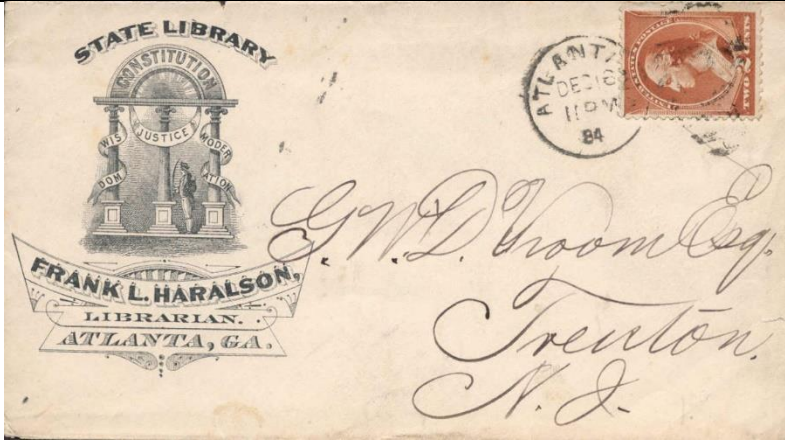 STATE LIBRARY
CONSTITUTION
WIS
DOM
JUSTICE
MODER
ATION
FRANK L. HARALSON,
LIBRARIAN.
ATLANTA, GA.
DEC 16
11 PM
84
TWO 2 CENTS
G. W. D. Vroom Esq.
Trenton,
N. J.